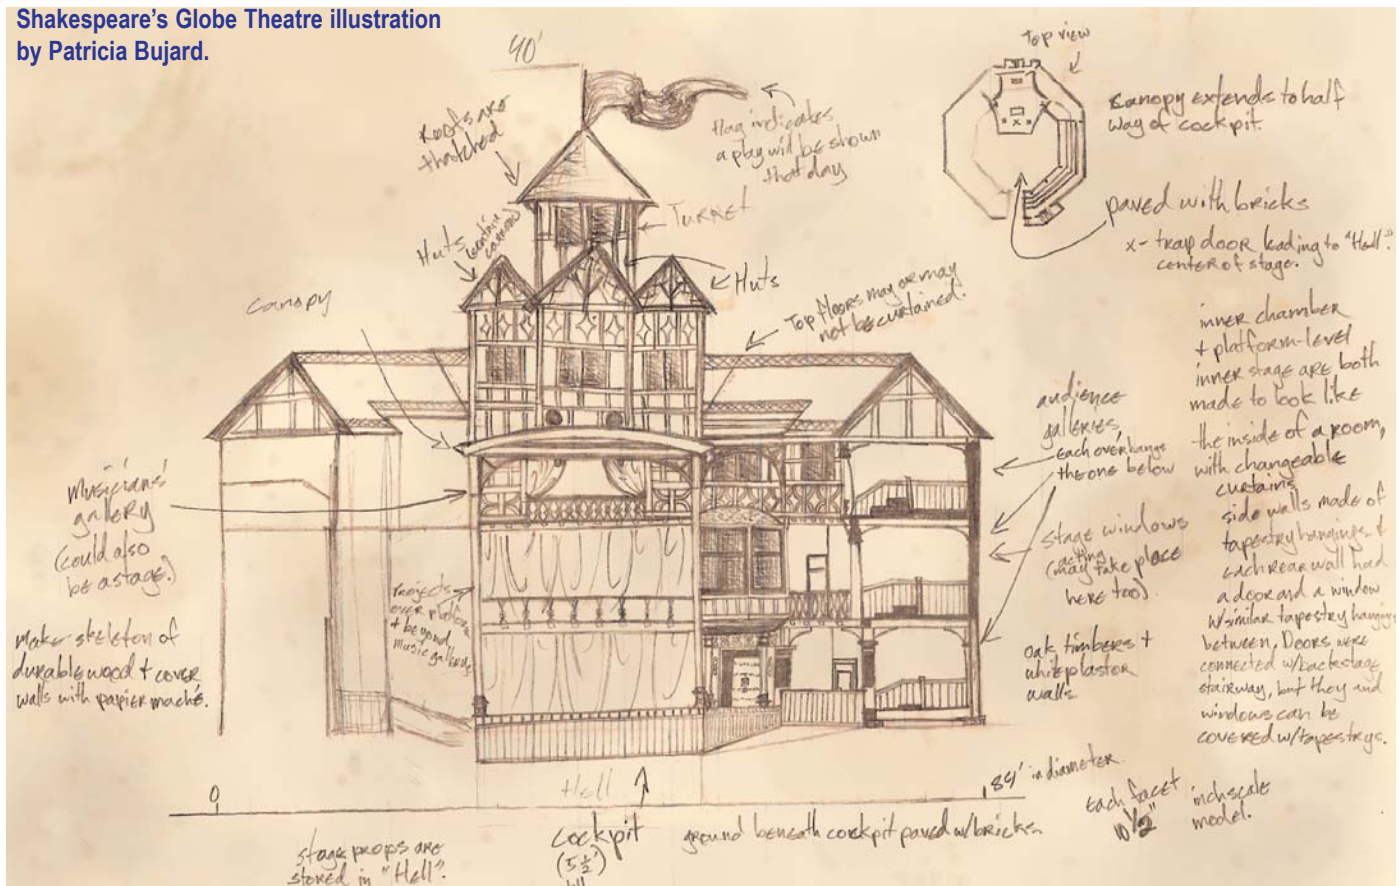 Shakespeare's Globe Theatre illustration
by Patricia Bujard.
40'
Roofs are
thatched
Flag indicates
a play will be shown
that day
Top view
Canopy extends to half
way of cockpit.
paved with bricks
x- trap door leading to "Hell".
center of stage.
Turret
Huts
cannon)
Huts
Canopy
Top floors may or may
not be curtained.
inner chamber
+ platform-level
inner stage are both
made to look like
the inside of a room,
with changeable
curtains
side walls made of
tapestry hangings +
each rear wall had
a door and a window
w/similar tapestry hangings
between. Doors were
connected w/backstage
stairway, but they and
windows can be
covered w/tapestrys.
audience
galleries,
each overhangs
the one below
stage windows
acting
(may take place
here too)
oak timbers +
white plastor
walls
Musicians'
gallery
(could also
be a stage.)
Projects
over platform
+ beyond
music gallery
Make skeleton of
durable wood + cover
walls with papier maché.
Hell
0
84' in diameter.
Each facet
10 1/2"
inch scale
model.
stage props are
stored in "Hell".
Cockpit
(5 1/2'
ground beneath cockpit paved w/bricks.